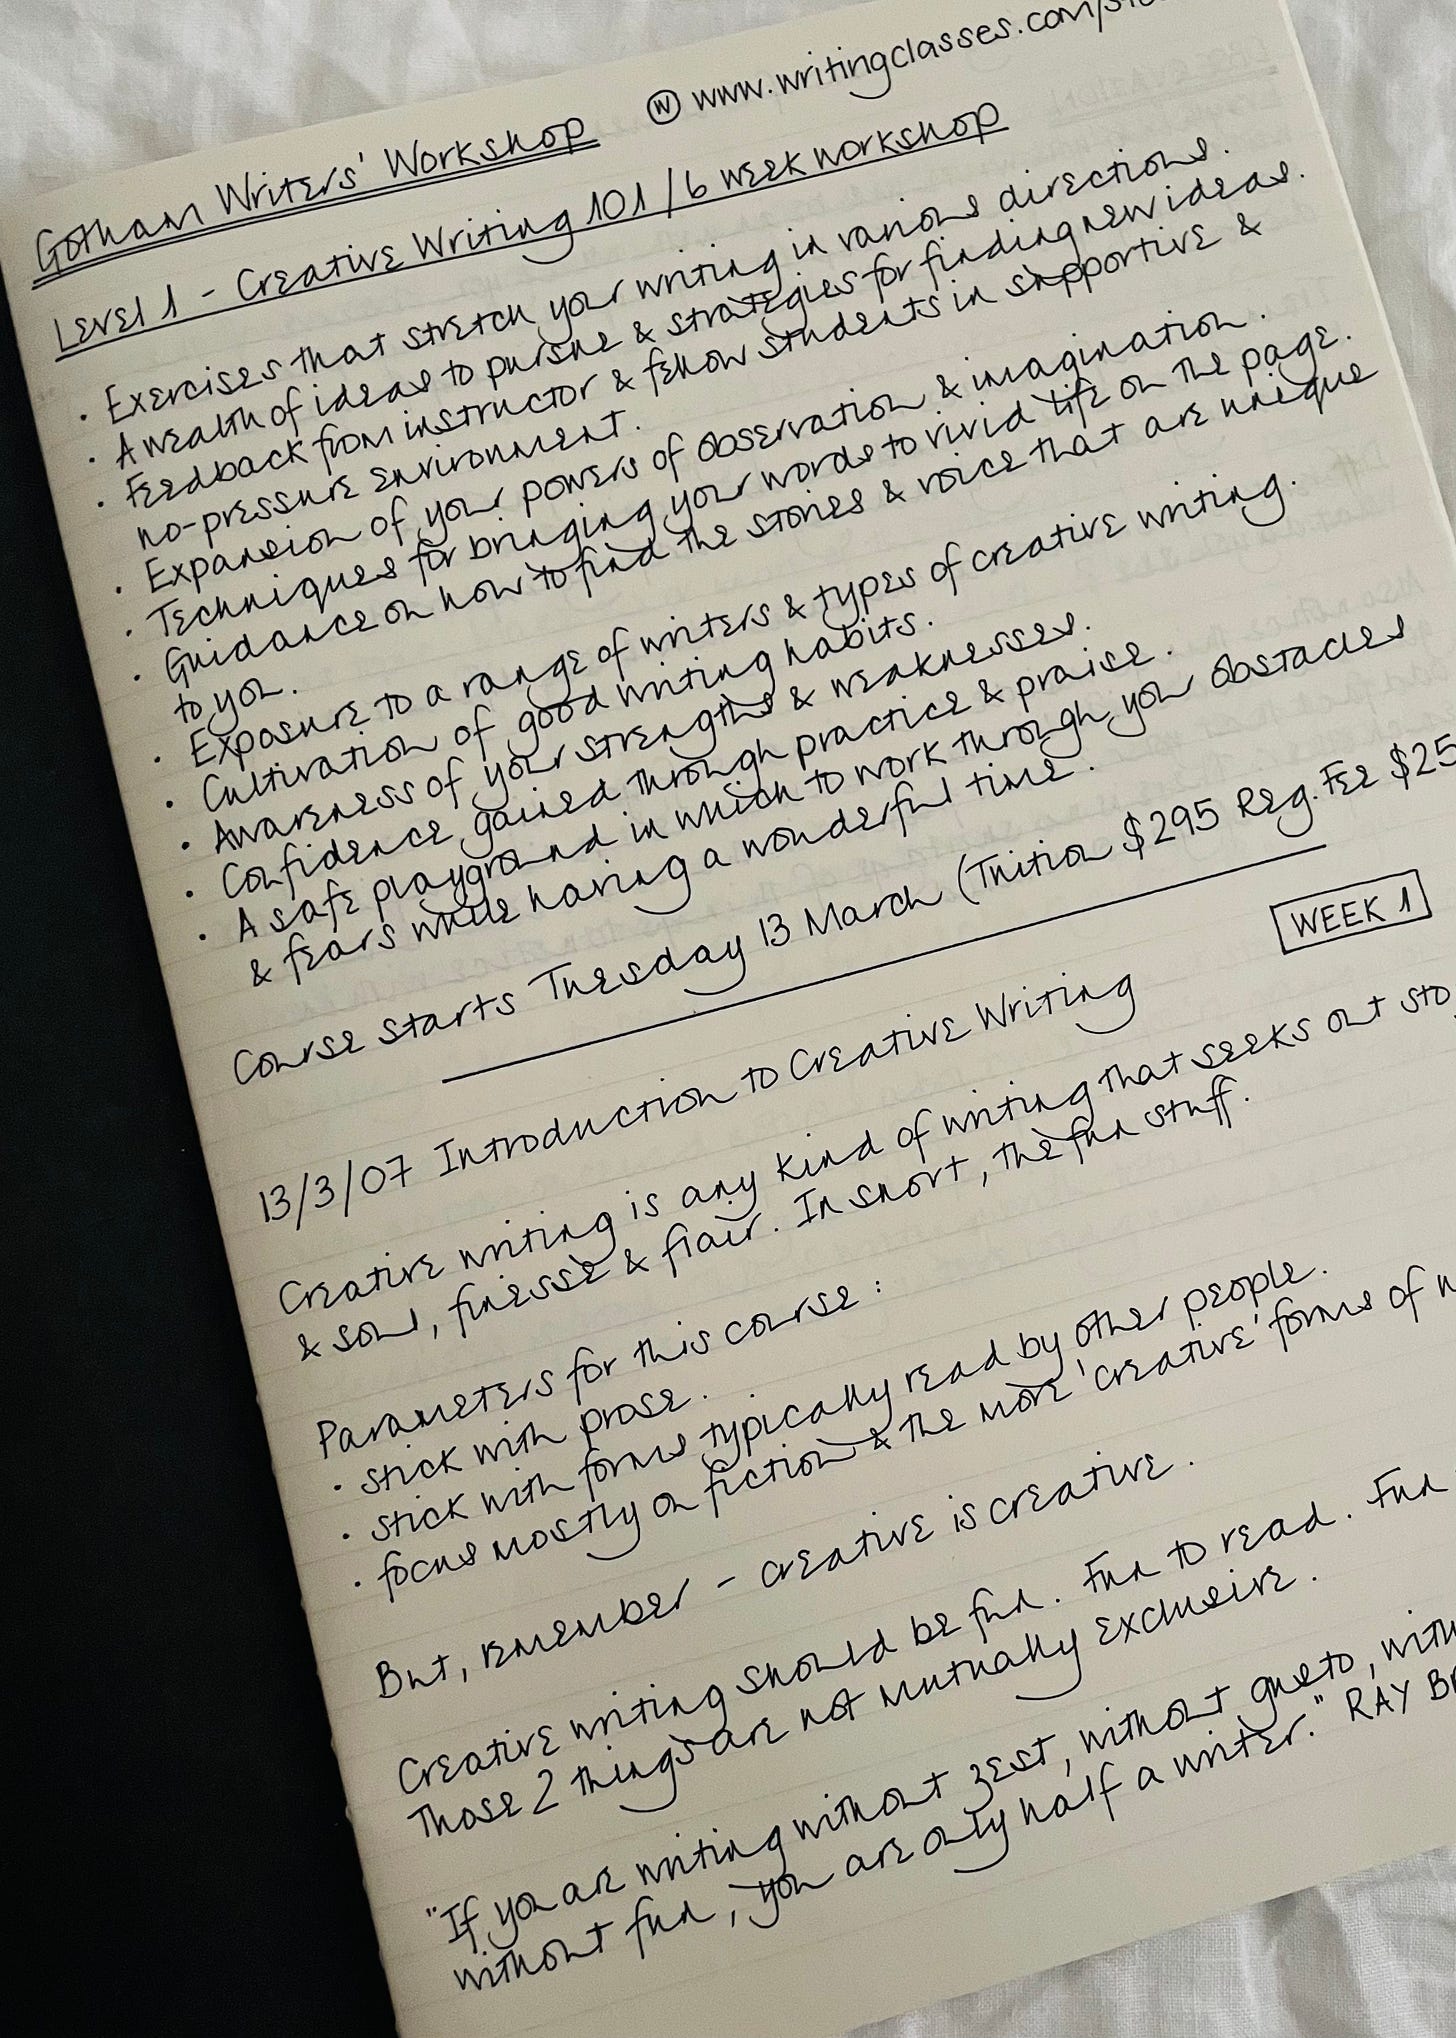 Gotham Writers' Workshop Ⓦ www.writingclasses.com/
Level 1 - Creative Writing 101 / 6 week workshop
· Exercises that stretch your writing in various directions.
· A wealth of ideas to pursue & strategies for finding new ideas.
· Feedback from instructor & fellow students in supportive &
no-pressure environment.
· Expansion of your powers of observation & imagination.
· Techniques for bringing your words to vivid life on the page.
· Guidance on how to find the stories & voice that are unique
to you.
· Exposure to a range of writers & types of creative writing.
· Cultivation of good writing habits.
· Awareness of your strengths & weaknesses.
· Confidence gained through practice & praise.
· A safe playground in which to work through your obstacles
& fears while having a wonderful time.
Course starts Tuesday 13 March (Tuition $295 Reg. Fee $25
WEEK 1
13/3/07 Introduction to Creative Writing
Creative writing is any kind of writing that seeks out
& soul, finesse & flair. In short, the fun stuff.
Parameters for this course:
· stick with prose.
· stick with forms typically read by other people.
· focus mostly on fiction & the more 'creative' forms of
But, remember - creative is creative.
Creative writing should be fun. Fun to read. Fun
Those 2 things are not mutually exclusive.
"If you are writing without zest, without gusto, with
without fun, you are only half a writer." RAY